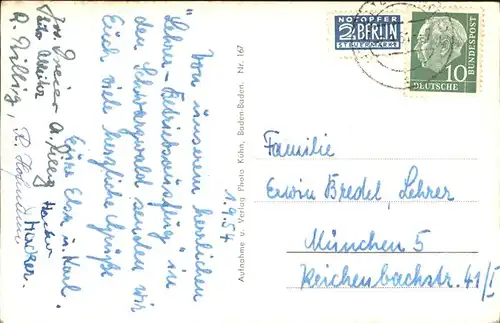 Von unserem herrlichen
"Lehrer-Betriebsausflug" in
den Schwarzwald senden wir
Euch viele herzliche Grüße
Eure Elsa u. Karl
Hacker.
Hacker
1.9.54
Aufnahme u. Verlag Photo Kühn, Baden-Baden. Nr. 167
NOTOPFER
2 BERLIN
STEUERMARKE
DEUTSCHE
BUNDESPOST
10
Familie
Erwin Bredel, Lehrer
München 5
Reichenbachstr. 41/I